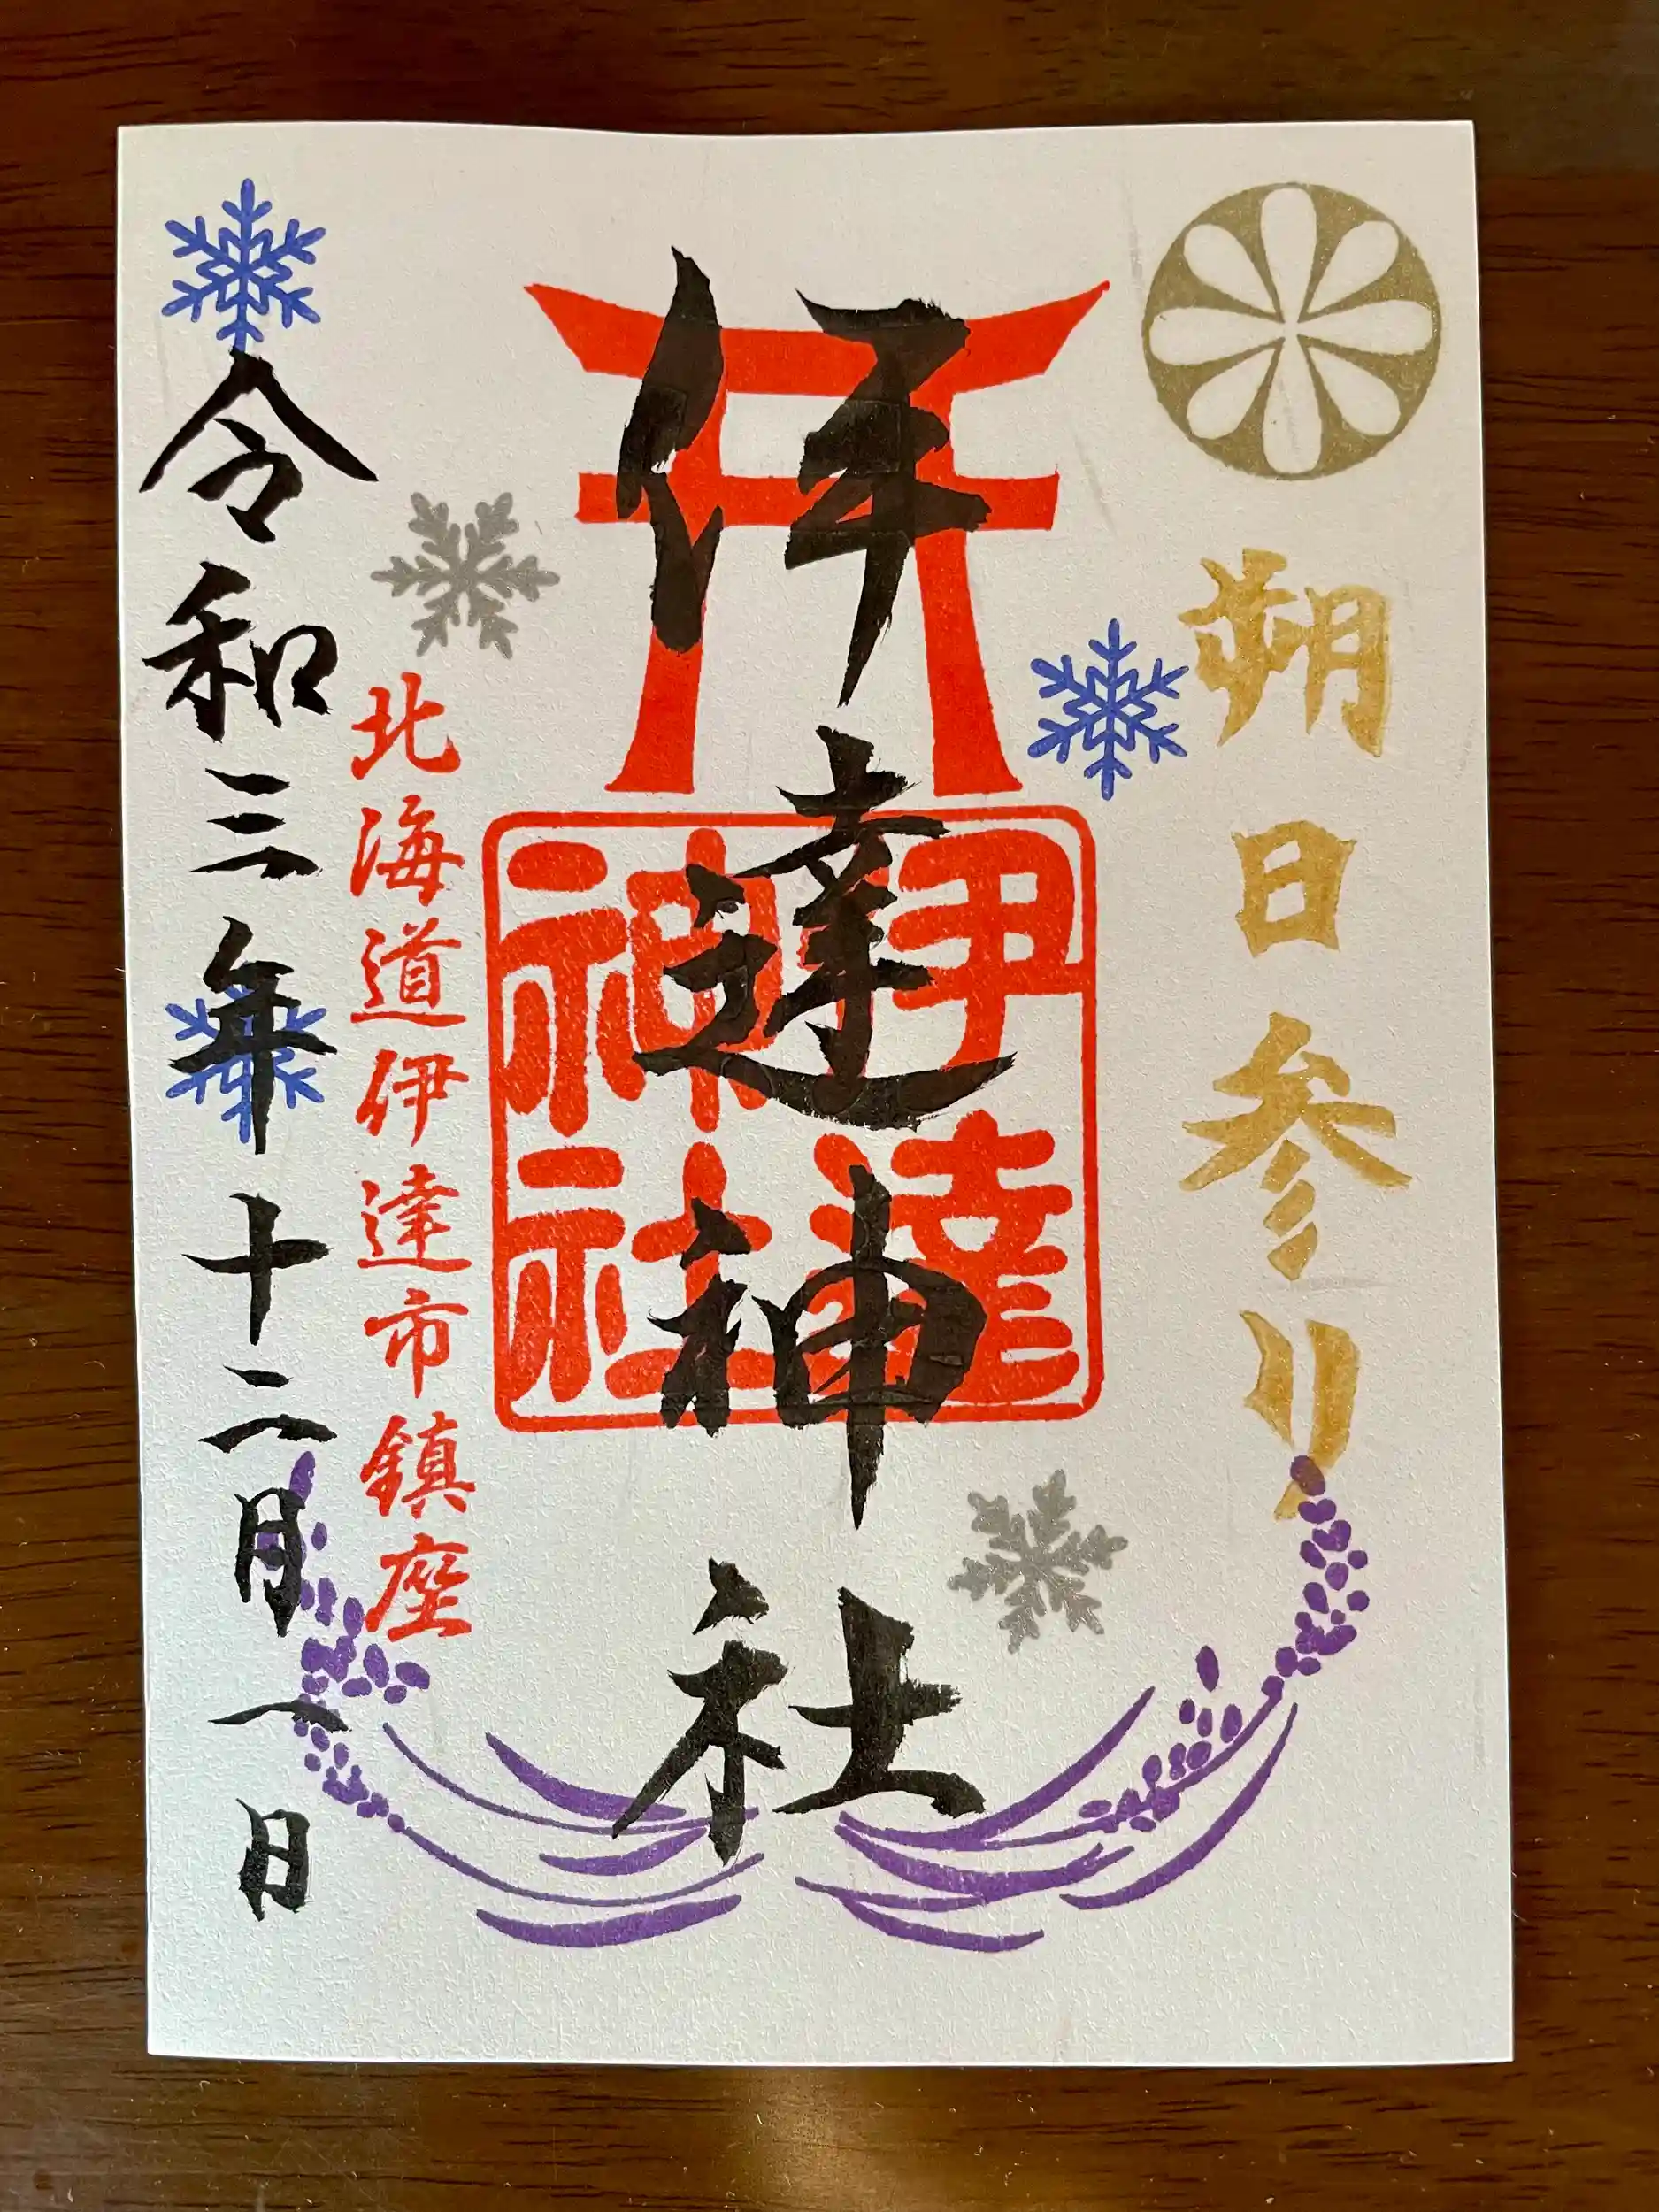 朔日参り
伊達神社
伊達
神社
北海道伊達市鎮座
令和三年十二月一日